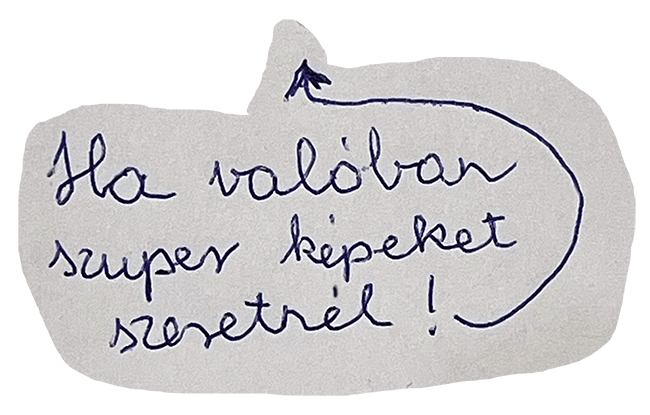 Ha valóban
szuper képeket
szeretnél!